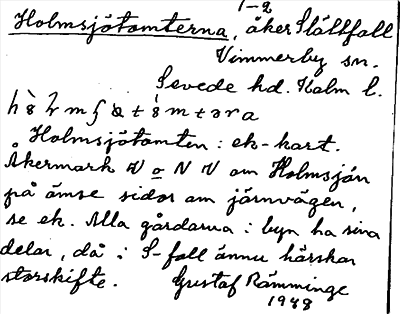 1-2
Holmsjötomterna, åker Slättfall
Vimmerby sn.
Sevede hd. Kalm l.
Holmsjötomten: ek-kart.
Åkermark V o N V om Holmsjön
på ömse sidor om järnvägen,
se ek. Alla gårdarna i byn ha sina
delar, då i S-fall ännu härskar
storskifte. Gustaf Rämminge
1938